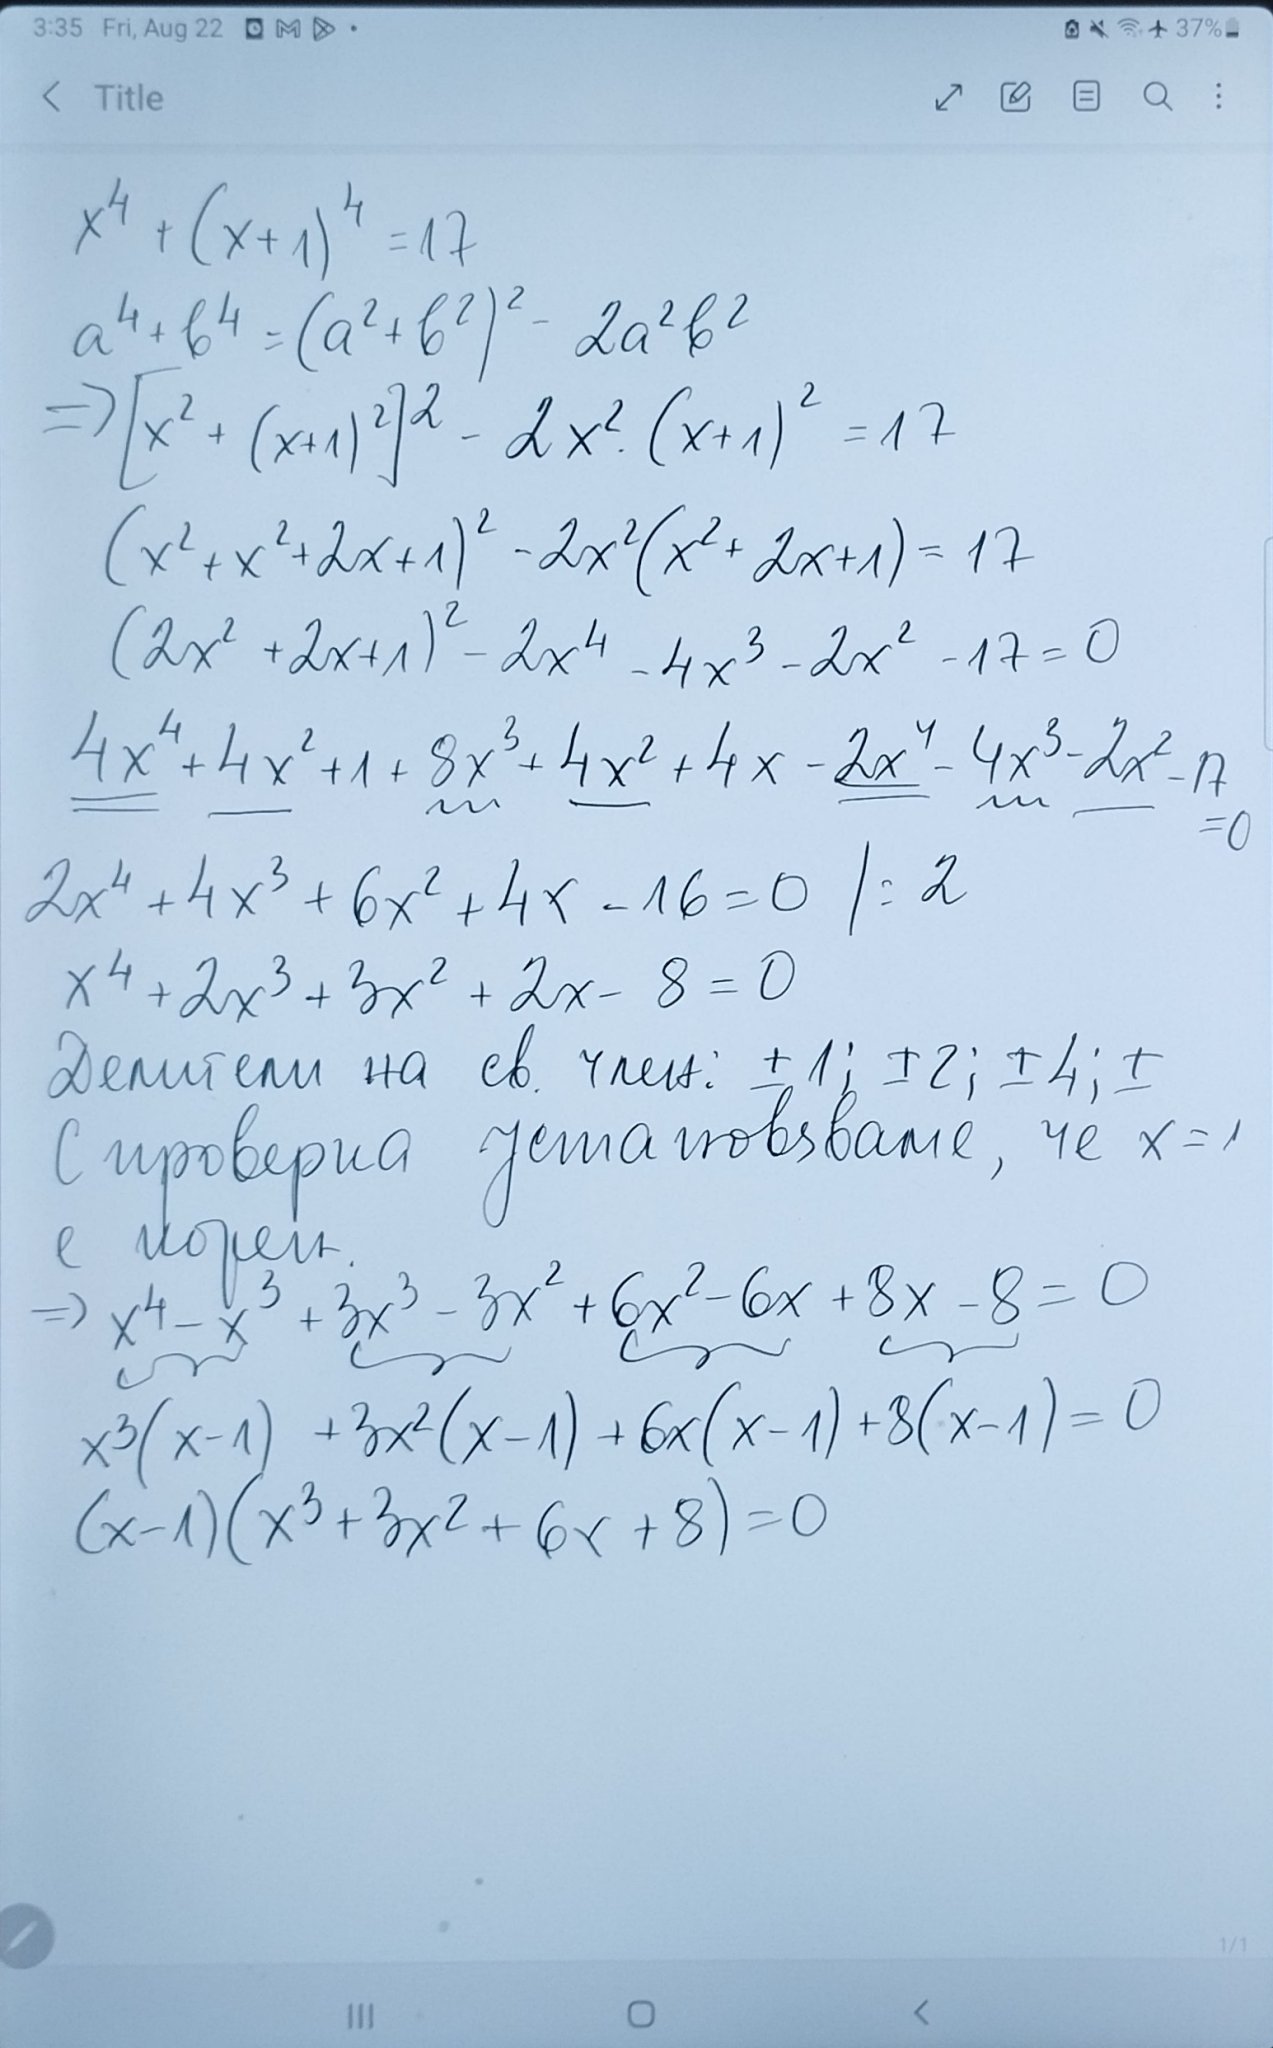 3:35 Fri, Aug 22 37%
Title
x⁴ + (x+1)⁴ = 17
a⁴ + b⁴ = (a² + b²)² - 2a²b²
=> [x² + (x+1)²]² - 2x².(x+1)² = 17
(x² + x² + 2x + 1)² - 2x²(x² + 2x + 1) = 17
(2x² + 2x + 1)² - 2x⁴ - 4x³ - 2x² - 17 = 0
4x⁴ + 4x² + 1 + 8x³ + 4x² + 4x - 2x⁴ - 4x³ - 2x² - 17
= 0
2x⁴ + 4x³ + 6x² + 4x - 16 = 0 /: 2
x⁴ + 2x³ + 3x² + 2x - 8 = 0
Делители на св. член: ±1; ±2; ±4; ±
С проверка установяваме, че x = 1
е корен.
=> x⁴ - x³ + 3x³ - 3x² + 6x² - 6x + 8x - 8 = 0
x³(x-1) + 3x²(x-1) + 6x(x-1) + 8(x-1) = 0
(x-1)(x³ + 3x² + 6x + 8) = 0
1/1